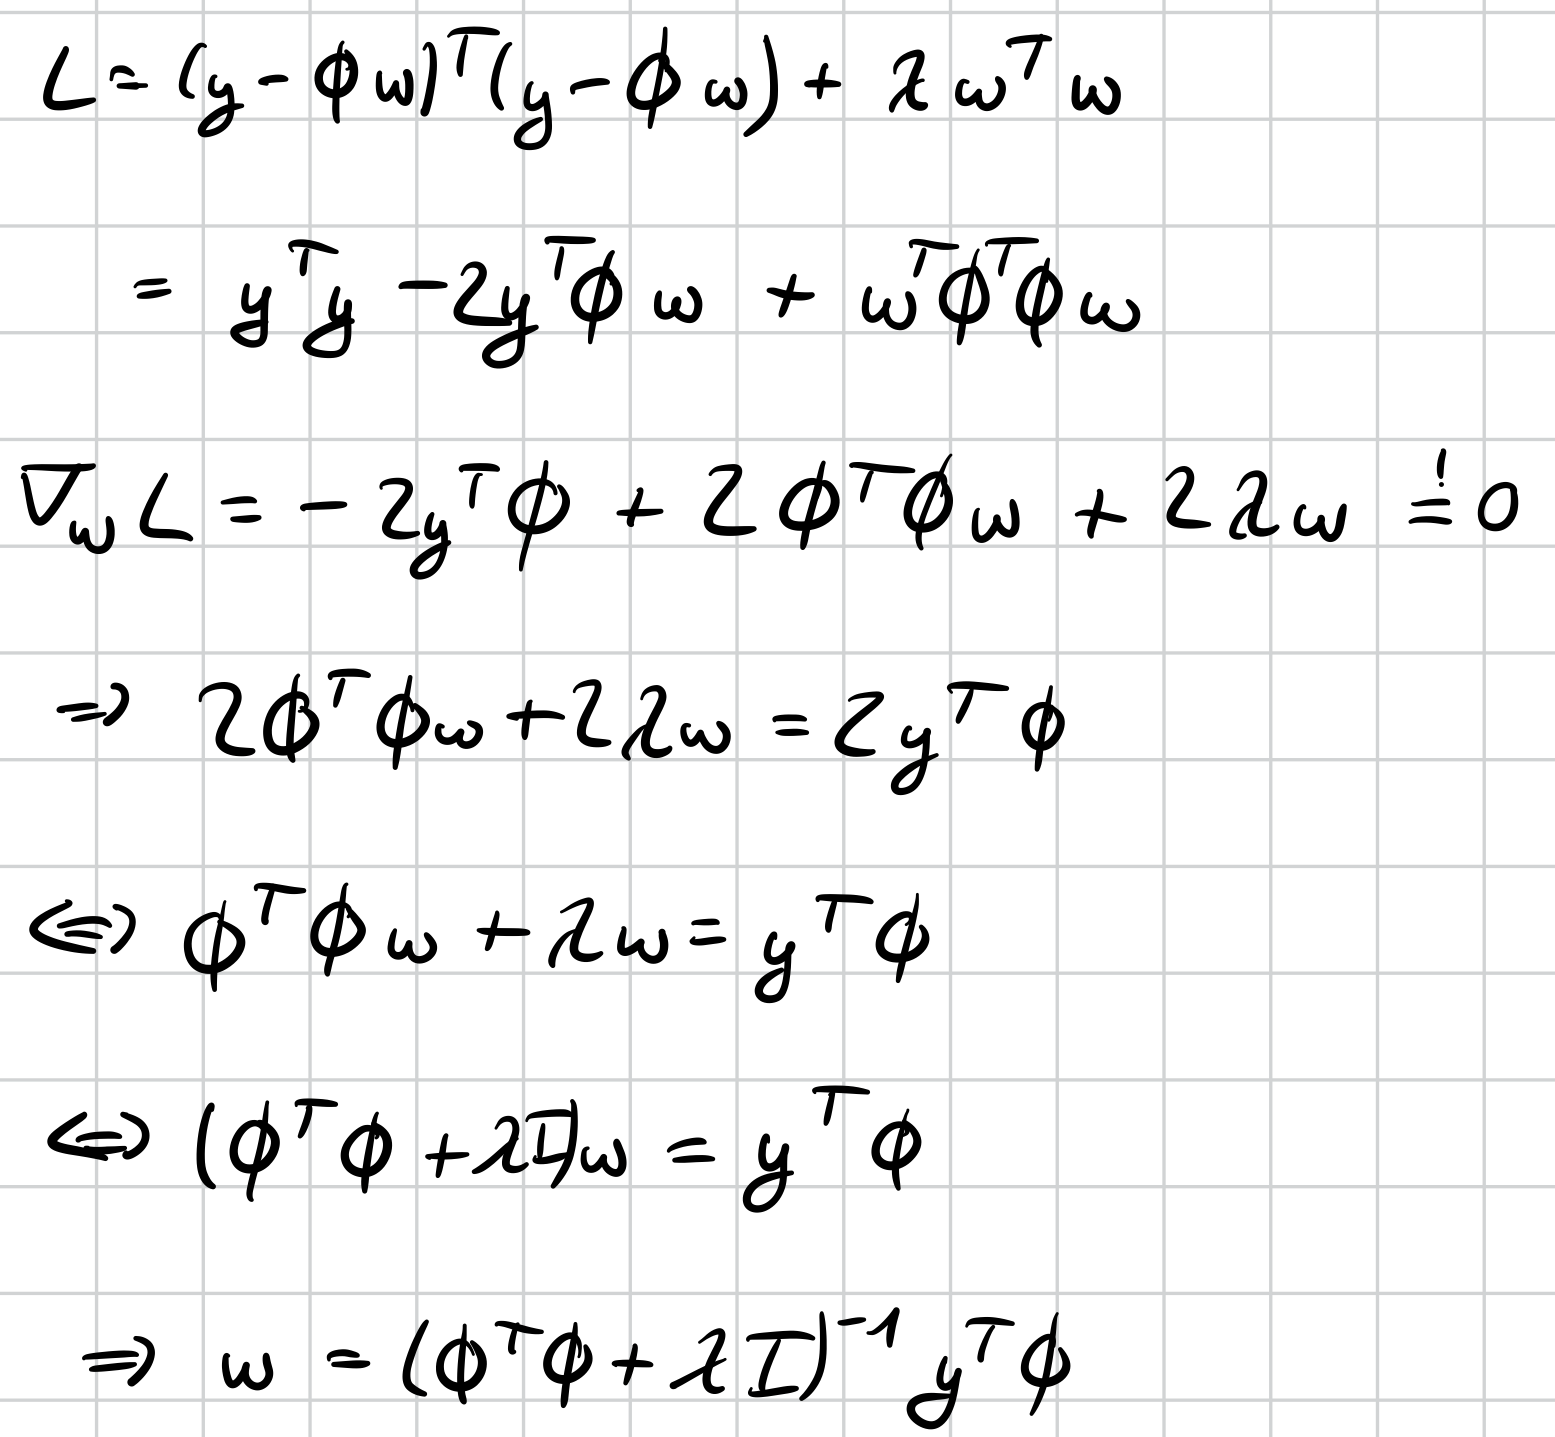 L = (y - ϕw)ᵀ(y - ϕw) + λwᵀw
= yᵀy - 2yᵀϕw + wᵀϕᵀϕw
∇_w L = -2yᵀϕ + 2ϕᵀϕw + 2λw =! 0
⇒ 2ϕᵀϕw + 2λw = 2yᵀϕ
⇔ ϕᵀϕw + λw = yᵀϕ
⇔ (ϕᵀϕ + λI)w = yᵀϕ
⇒ w = (ϕᵀϕ + λI)⁻¹ yᵀϕ